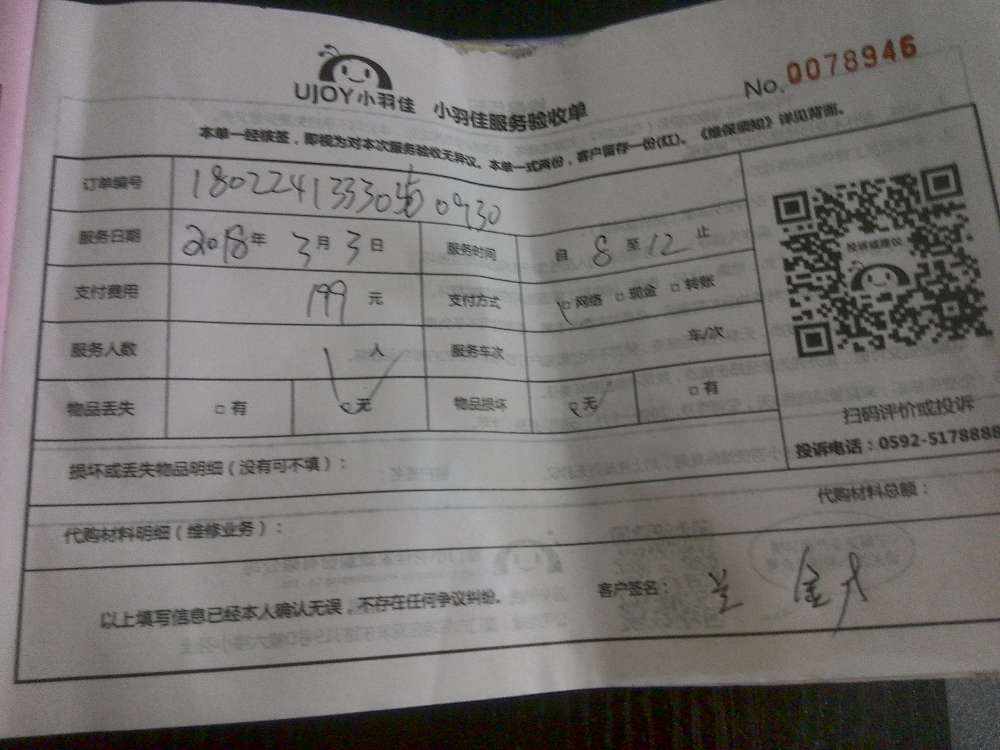 UJOY小羽佳 小羽佳服务验收单
No. 0078946
本单一经核签，即视为对本次服务验收无异议。本单一式两份，客户留存一份(红)。《维保须知》详见背面。
订单编号
服务日期 2018年 3月 3日 服务时间 自 8 至 12 止
支付费用 199 元 支付方式 网络 □ 现金 □ 转账
服务人数 人 服务车次 车/次
物品丢失 □ 有 无 物品损坏 无 □ 有
投诉或建议
扫码评价或投诉
投诉电话：0592-5178888
损坏或丢失物品明细（没有可不填）：
代购材料明细（维修业务）： 代购材料总额：
以上填写信息已经本人确认无误，不存在任何争议纠纷。 客户签名：